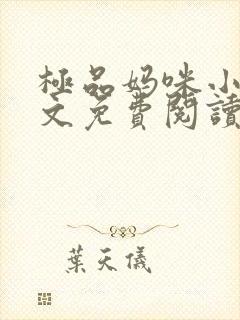 極品妈咪小
文免費閱讀
葉天儀